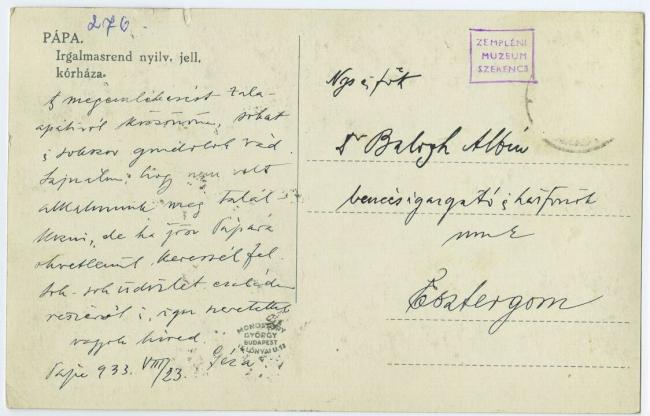 276.
PÁPA.
Irgalmasrend nyilv. jell.
kórháza.
A megemlékezést Zala-
apátiról köszönöm, sokat
s sokszor gondolok rád.
Sajnálom, hogy nem volt
alkalmunk meg talál-
kozni, de ha jössz Pápára
okvetlenül keressél fel.
Sok-sok üdvözlet családom
részéről is, igen szeretettel
vagyok híved
Géza
Pápa 933. VIII/23.
ZEMPLÉNI
MUZEUM
SZERENCS
Dr Balogh Albin
úrnak
Esztergom
GYÖRGY
BUDAPEST